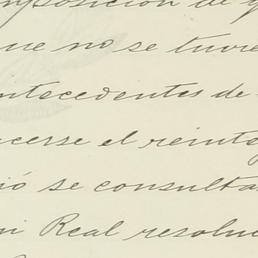 mposicion de q
ue no se tuvie
ntecedentes de
acerse el reinte
ió se consulta
mi Real resoluc